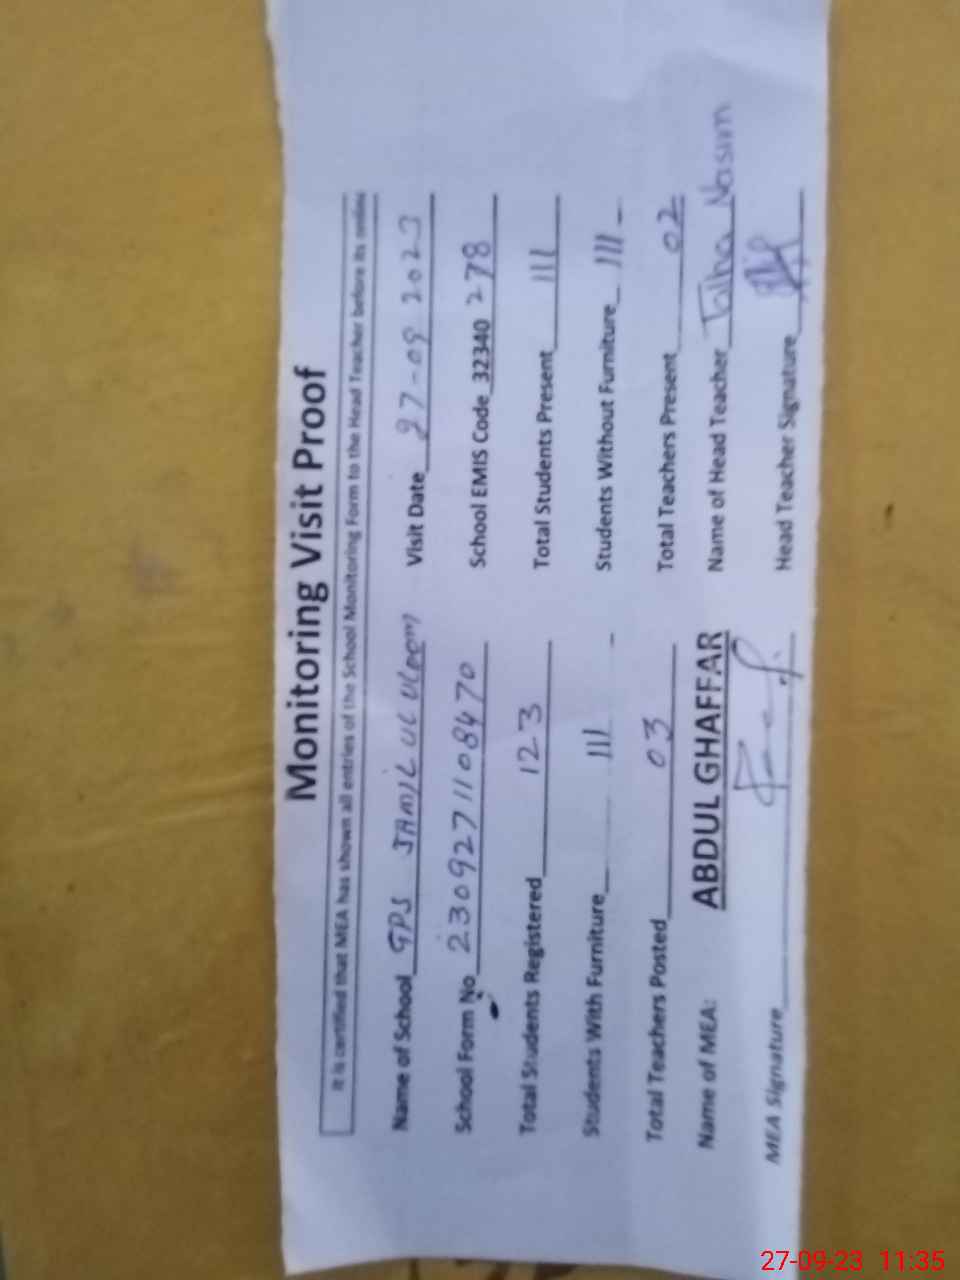 Monitoring Visit Proof
It is certified that MEA has shown all entries of the School Monitoring Form to the Head Teacher before its online
Name of School GPS JAMIL UL ULOOM Visit Date 27-09 2023
School Form No 23092711108470 School EMIS Code 32340 278
Total Students Registered 123 Total Students Present 111
Students With Furniture 111 Students Without Furniture 111 -
Total Teachers Posted 03 Total Teachers Present 02
Name of MEA: ABDUL GHAFFAR Name of Head Teacher Talha Nasim
MEA Signature Head Teacher Signature
27-09-23 11:35